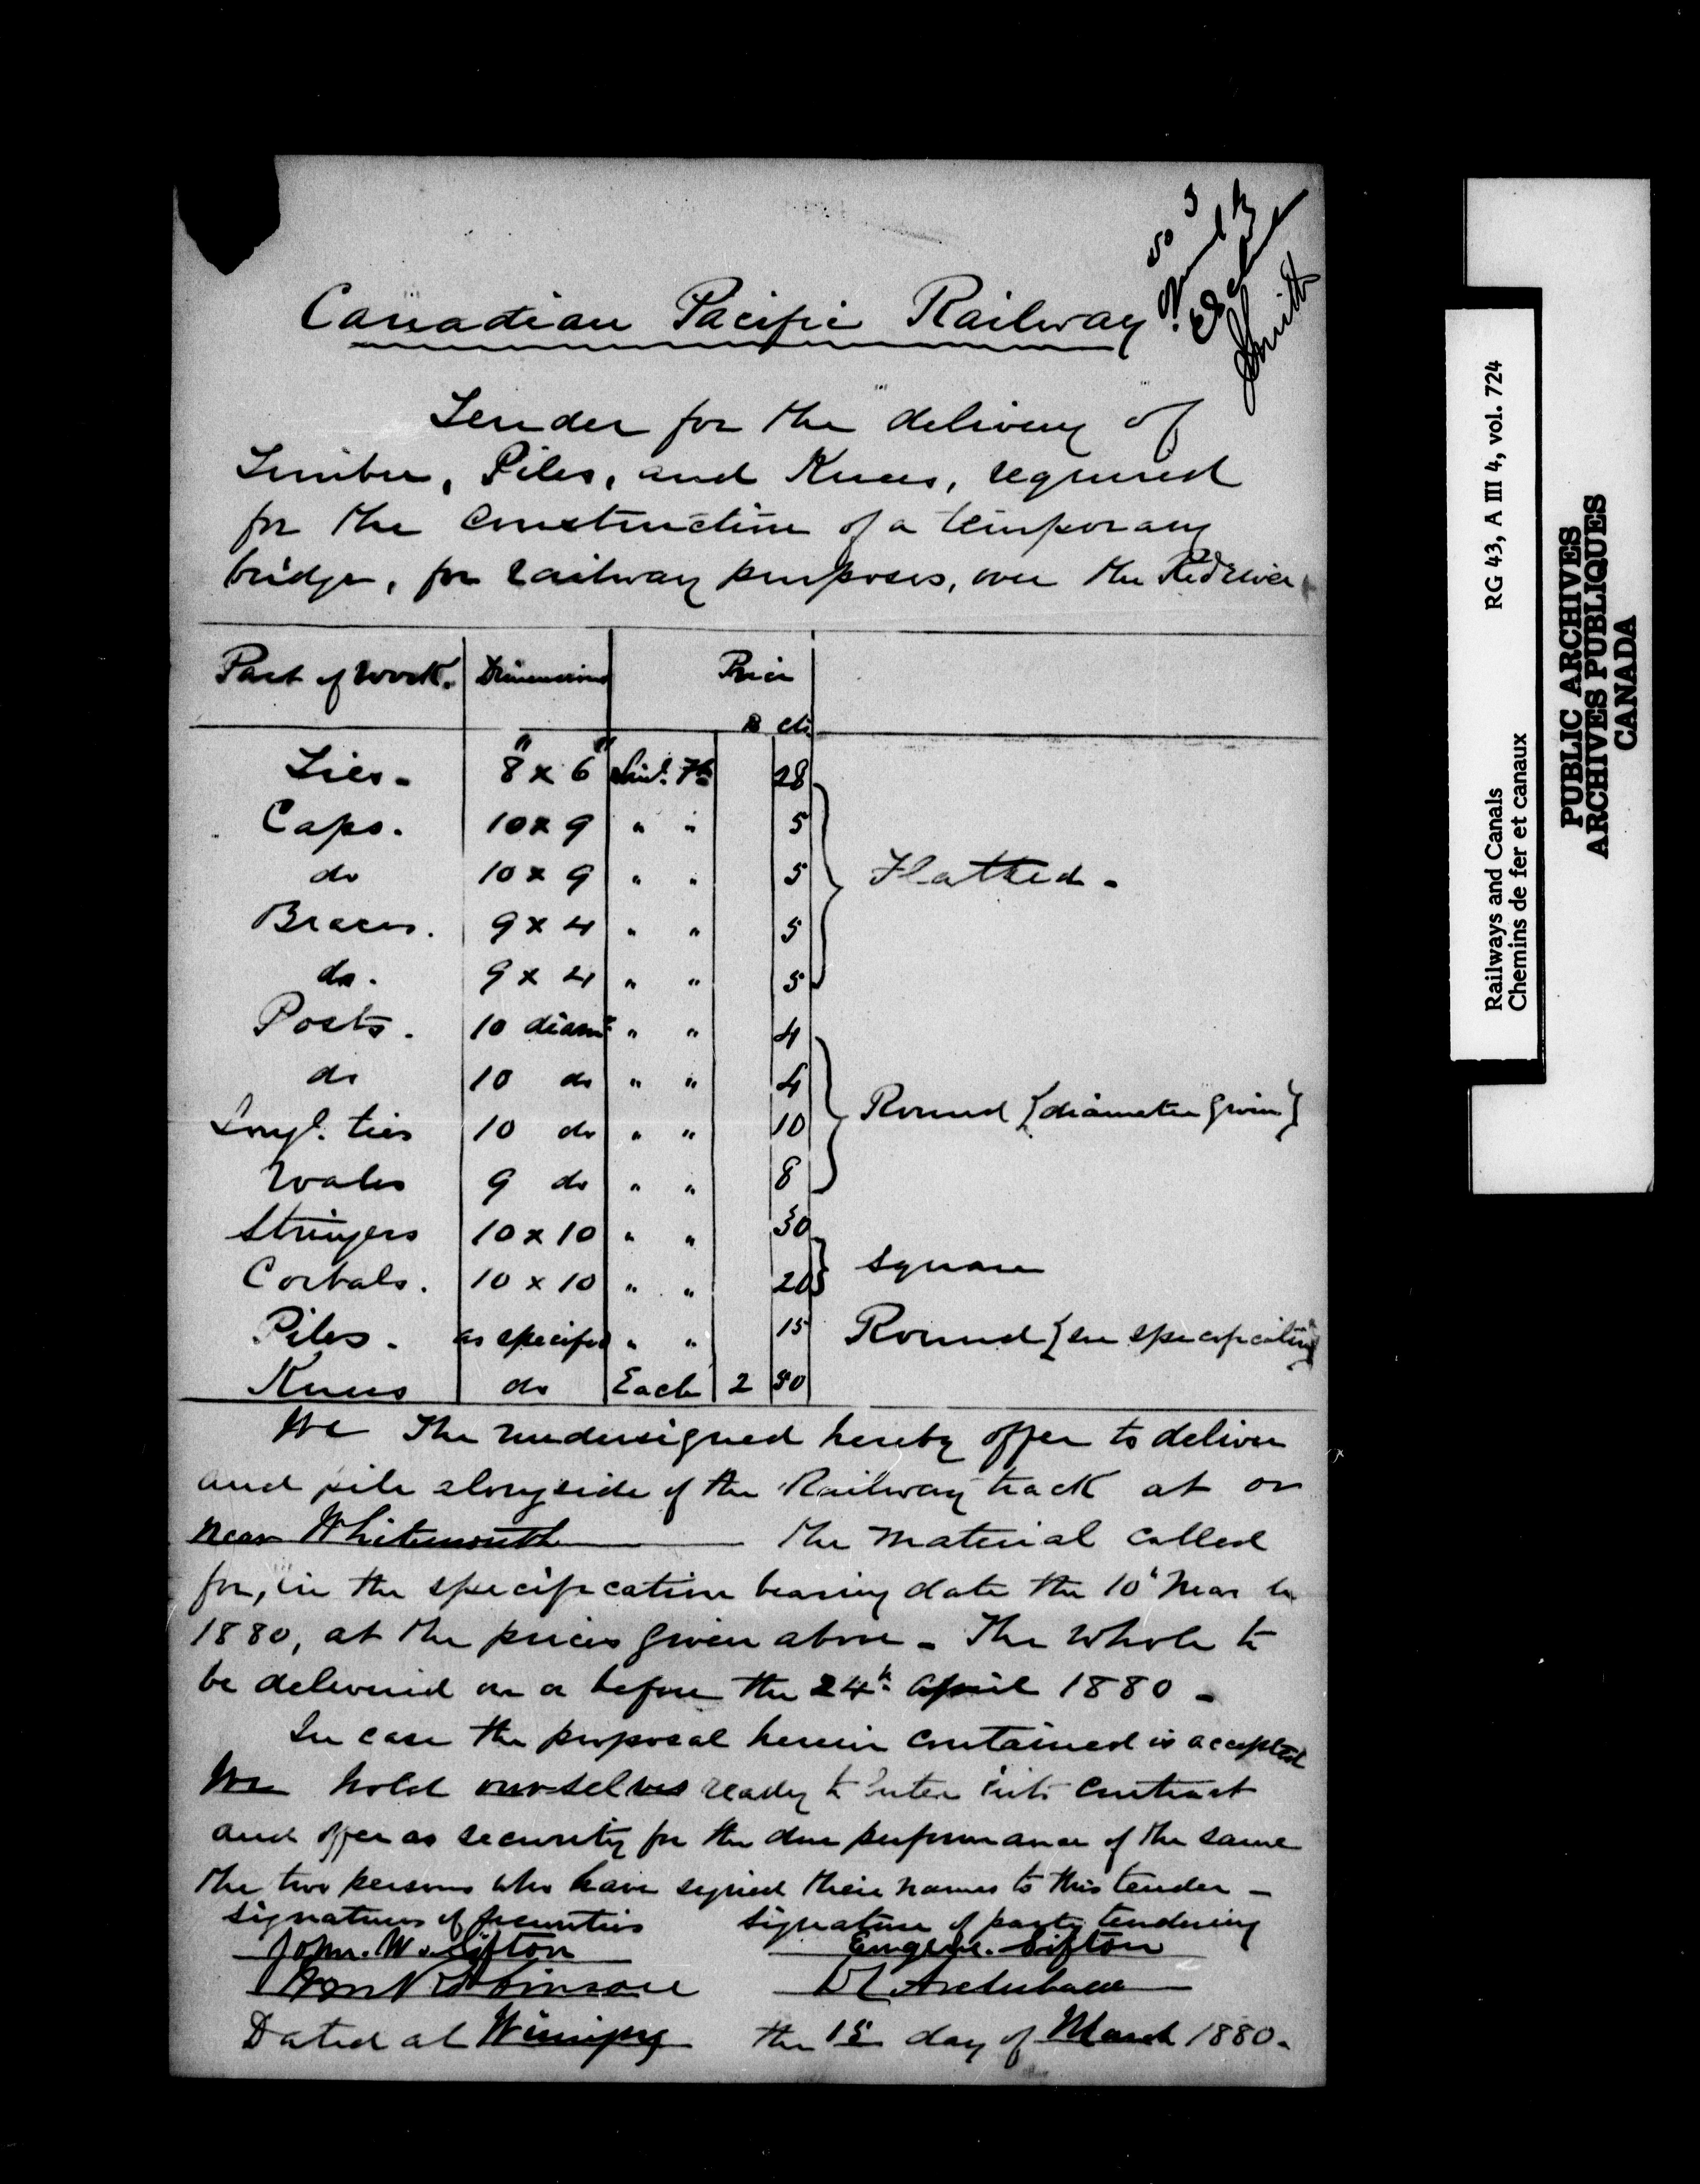 Canadian Pacific Railway
Smith
Tender for the delivery of
Timber, Piles, and Knees, required
for the Construction of a temporary
bridge, for railway purposes, over the Red River
Part of Work. Dimensions Price
$ cts
Ties - 8" x 6" Linl. Ft 28
Caps. 10 x 9 " " 5
do 10 x 9 " " 5 Flatted -
Braces. 9 x 4 " " 5
do. 9 x 4 " " 5
Posts. 10 diamr " " 4
do 10 do " " 4
Longl. ties 10 do " " 10 Round {diameter given}
Wales 9 do " " 8
Stringers 10 x 10 " " 30
Corbals. 10 x 10 " " 20 Square
Piles. as specified " " 15 Round {see specification}
Knees do Each 2 50
We The undersigned hereby offer to deliver
and pile alongside of the Railway track at or
near Whitemouth the material called
for, in the specification bearing date the 10th March
1880, at the prices given above - The whole to
be delivered on or before the 24th April 1880 -
In case the proposal herein contained is accepted
We hold ourselves ready to enter into contract
and offer as security for the due performance of the same
the two persons who have signed their names to this tender -
Signatures of securities Signature of party tendering
John. W. Sifton Eugene. Sifton
Wm Robinson Archibald
Dated at Winnipeg the 15 day of March 1880.
Railways and Canals RG 43, A III 4, vol. 724
Chemins de fer et canaux
PUBLIC ARCHIVES
ARCHIVES PUBLIQUES
CANADA